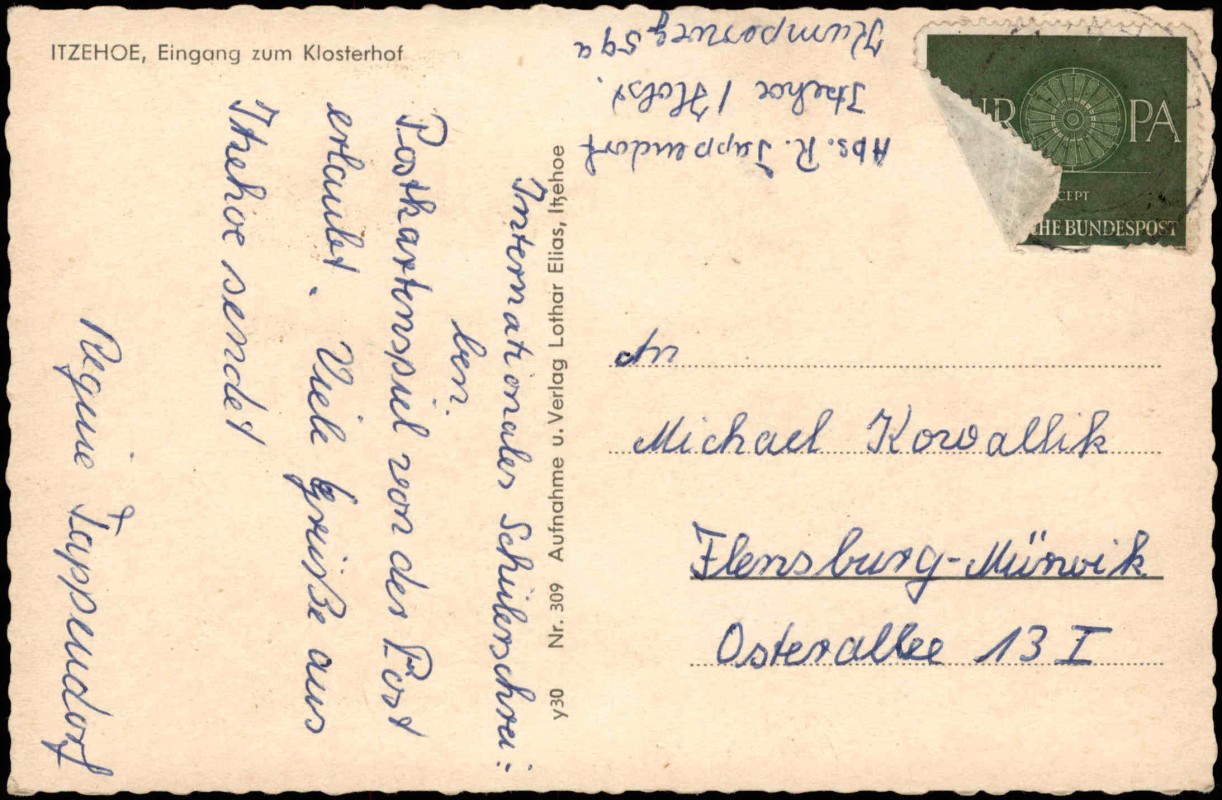 ITZEHOE, Eingang zum Klosterhof
Abs. R. Tappendorf
Itzehoe / Holst.
59a
Internationales Schülerschrei:
ben.
Postkartenspiel von der Post
erlaubt. Viele Grüße aus
Itzehoe sendet
Regine Tappendorf
y30 Nr. 309 Aufnahme u. Verlag Lothar Elias, Itzehoe
PA
CEPT
HE BUNDESPOST
An
Michael Kowallik
Flensburg-Mürwik
Osterallee 13 I